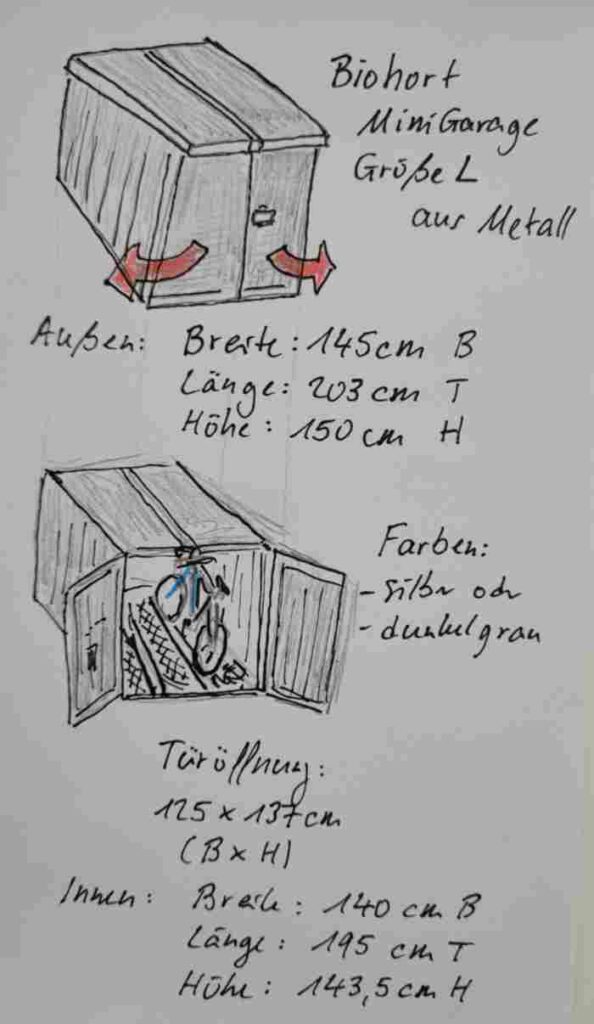 Biohort
MiniGarage
Größe L
aus Metall
Außen: Breite: 145cm B
Länge: 203 cm T
Höhe: 150 cm H
Farben:
- silber oder
- dunkelgrau
Türöffnung:
125 x 137cm
(B x H)
Innen: Breite: 140 cm B
Länge: 195 cm T
Höhe: 143,5 cm H